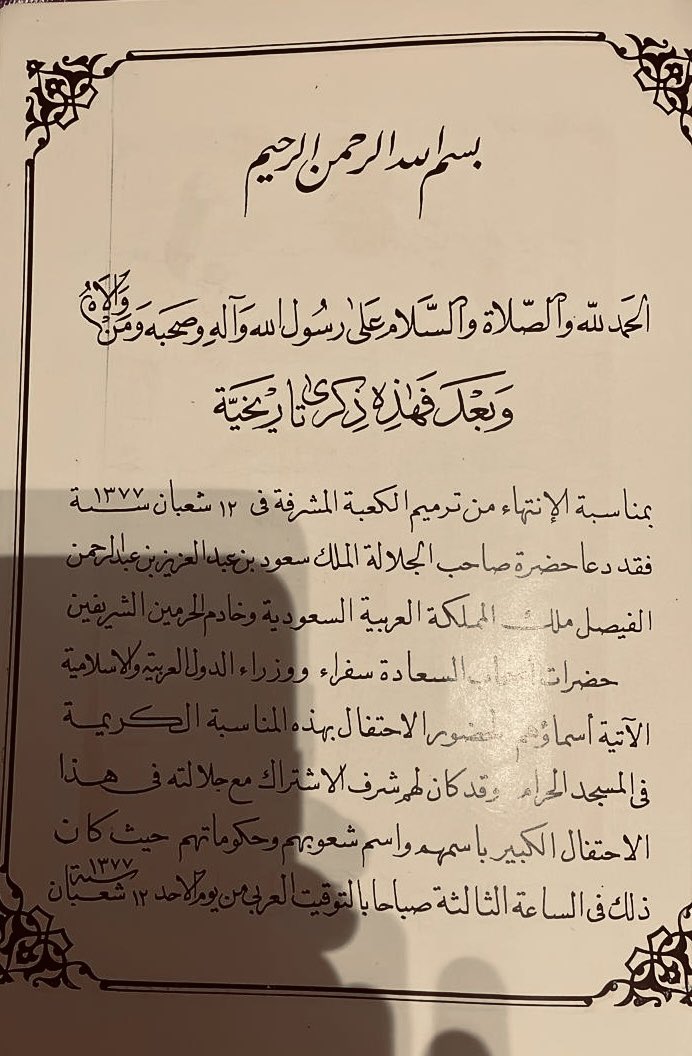 بسم الله الرحمن الرحيم
الحَمَد لله وَالصَّلاة وَالسَّلَام عَلىٰ رسُول الله وَآلهِ وصَحبَه وَمَن وَالَاهُ
وَبَعْدَ فَهٰذِه ذِكرىٰ تاريخيَّة
بمناسبة الإنتهاء من ترميم الكعبة المشرفة فى ١٢ شعبان سنة ١٣٧٧
فقد دعا حضرة صاحب الجلالة الملك سعود بن عبد العزيز بن عبد الرحمن
الفيصل ملك المملكة العربية السعودية وخادم الحرمين الشريفين
حضرات أصحاب السعادة سفراء ووزراء الدول العربية والاسلامية
الآتية أسماؤهم لحضور الاحتفال بهذه المناسبة الكريمة
فى المسجد الحرام وقد كان لهم شرف الاشتراك مع جلالته فى هذا
الاحتفال الكبير باسمهم واسم شعوبهم وحكوماتهم حيث كان
ذلك فى الساعة الثالثة صباحا بالتوقيت العربى من يوم الاحد ١٢ شعبان سنة ١٣٧٧